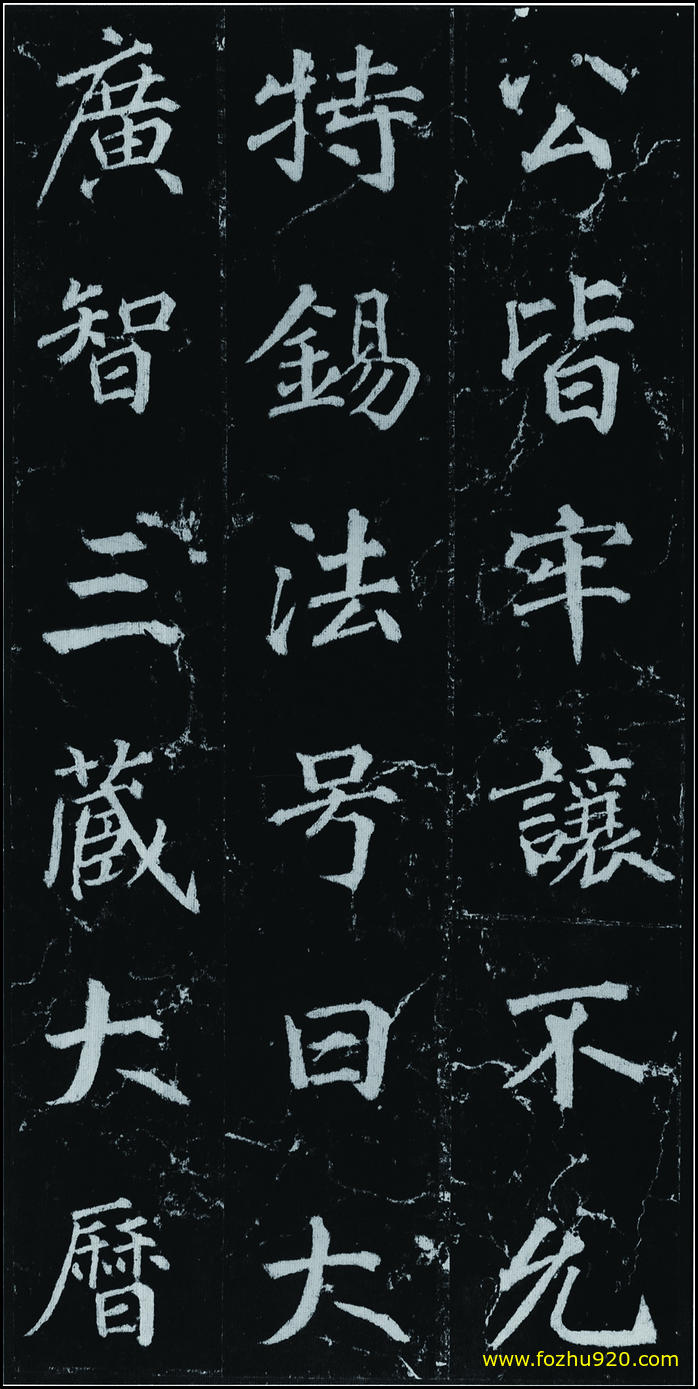 公皆牢讓不允
特錫法号曰大
廣智三藏大曆
www.fozhu920.com